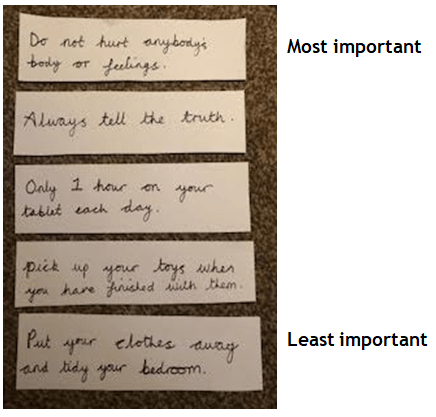 Do not hurt anybody's
body or feelings.
Most important
Always tell the truth.
Only 1 hour on your
tablet each day.
pick up your toys when
you have finished with them.
Put your clothes away
and tidy your bedroom.
Least important